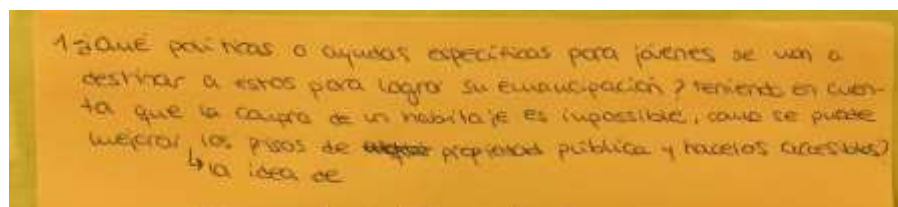 1 ¿Qué políticas o ayudas específicas para jóvenes se van a
destinar a estos para lograr su emancipación? Teniendo en cuen-
ta que la compra de un habitaje es impossible, como se puede
mejorar los pisos de propiedad pública y hacelos accesibles?
↳ la idea de